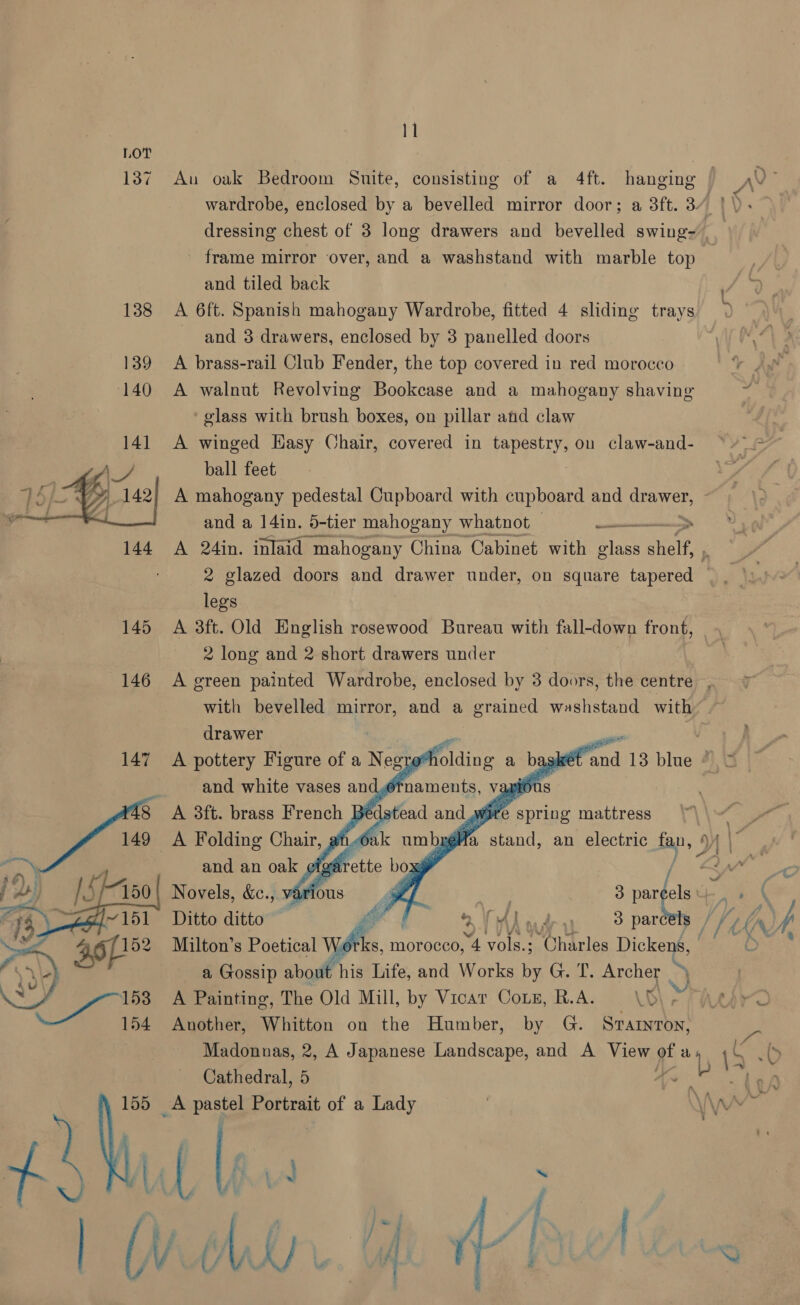 11
LOT
137 An oak Bedroom Suite, consisting of a 4ft. hanging
wardrobe, enclosed by a bevelled mirror door; a 3ft. 3
dressing chest of 3 long drawers and bevelled swing-
frame mirror over, and a washstand with marble top
and tiled back
138 A 6ft. Spanish mahogany Wardrobe, fitted 4 sliding trays
and 3 drawers, enclosed by 3 panelled doors
139 A brass-rail Club Fender, the top covered in red morocco
140 A walnut Revolving Bookcase and a mahogany shaving
glass with brush boxes, on pillar and claw
141 A winged Easy Chair, covered in tapestry, on claw-and-
ball feet
142 A mahogany pedestal Cupboard with cupboard and drawer,
and a 14in. 5-tier mahogany whatnot
144 A 24in. inlaid mahogany China Cabinet with glass shelf,
2 glazed doors and drawer under, on square tapered
legs
145 A 3ft. Old English rosewood Bureau with fall-down front,
2 long and 2 short drawers under
146 A green painted Wardrobe, enclosed by 3 doors, the centre
with bevelled mirror, and a grained washstand with
drawer
147 A pottery Figure of a Negro holding a basket and 13 blue
and white vases and ornaments, various
148 A 3ft. brass French Bedstead and wire spring mattress
149 A Folding Chair, an oak umbrella stand, an electric fan,
and an oak cigarette box
150 Novels, &c., various 3 parcels
151 Ditto ditto 3 parcels
152 Milton's Poetical Works, morocco, 4 vols.; Charles Dickens,
a Gossip about his Life, and Works by G. T. Archer
153 A Painting, The Old Mill, by Vicar Cole, R.A.
154 Another, Whitton on the Humber, by G. Stainton,
Madonnas, 2, A Japanese Landscape, and A View of a
Cathedral, 5
155 A pastel Portrait of a Lady